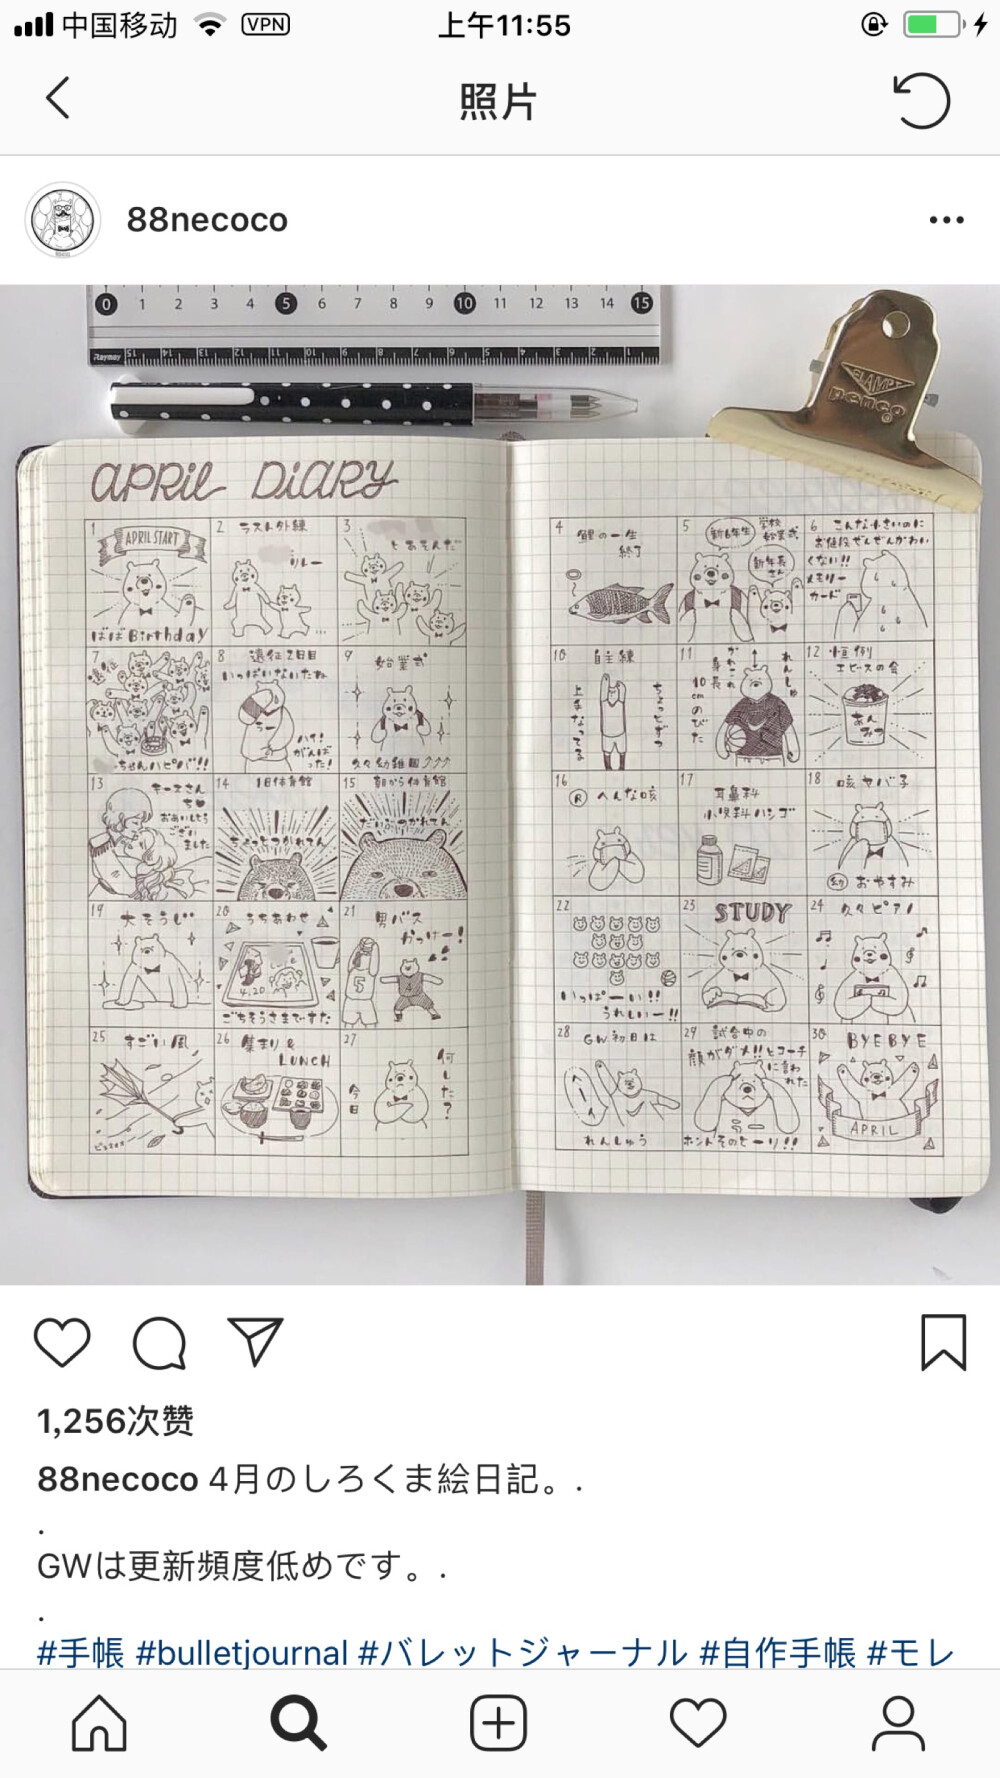 中国移动 VPN 上午11:55
照片
88necoco
0 1 2 3 4 5 6 7 8 9 10 11 12 13 14 15
Raymay 15 14 13 12 11 10 9 8 7 6 5 4 3 2 1
CLAMPY
penco
APRIL DIARY
1
APRIL START
ばばBirthday
2 ラスト外練
リレー
3
とあそんだ
4
鯉の一生
終了
5
新6年生
学校
始業式
新年長
さん
6 こんな小さいのに
お値段ぜんぜんかわい
くない!!
メモリー
カード
7
ちゃんハピバ!!
8 遠征2日目
いっぱいないたね
ハイ!
がんば
った!
9 始業式
久々幼稚園↑↑↑
10 自主練
ちょっとずつ
上手なってる
11
れんしゅ
身長
10cmのびた
12 恒例
エビスの会
あん
みつ
13 キースさん
おあいしとう
ござい
ました
14 1日体育館
ちょっとつかれてん
15 朝から体育館
だいぶつかれてん
16
R へんな咳
17 耳鼻科
小児科ハシゴ
18 咳ヤバ子
おやすみ
19 大そうじ
20 うちあわせ
4.20
ごちそうさまですた
21 男バス
かっけー!
5
4
22
いっぱーい!!
うれしいー!!
23 STUDY
24 久々ピアノ
25 すごい風
26 集まり&
LUNCH
27
何した?
今日
28 GW初日は
れんしゅう
29 試合中の
顔がダメ!!とコーチ
に言わ
れた
ホントそのとーり!!
30 BYEBYE
APRIL
1,256次赞
88necoco 4月のしろくま絵日記。.
.
GWは更新頻度低めです。.
.
#手帳 #bulletjournal #バレットジャーナル #自作手帳 #モレ